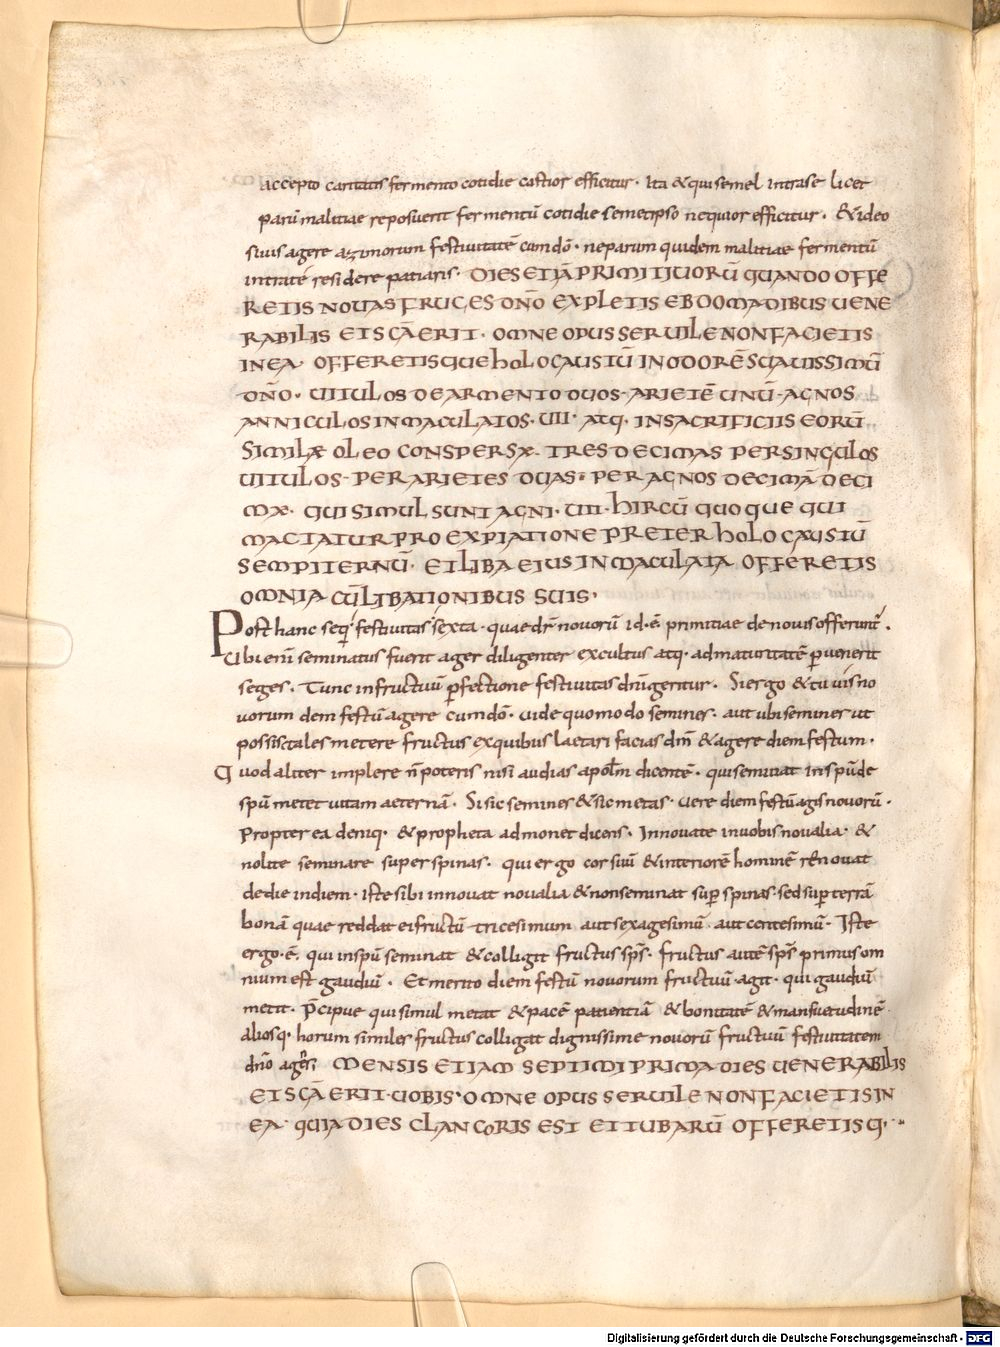 accepto caritatis fermento cotidie castior efficitur · Ita & qui semel intra se licet
parū malitiae reposuerit fermentū cotidie semetipso nequior efficitur · & ideo
si uis agere azimorum festiuitatē cum dō · ne parum quidem malitiae fermentū
intra te residere patiaris · DIES ETIĀ PRIMITIUORŪ QUANDO OFFE
RETIS NOUAS FRUCES DÑO EXPLETIS EBDOMADIBUS UENE
RABILIS ET SC̄A ERIT · OMNE OPUS SERUILE NON FACIETIS
IN EA · OFFERETISQUE HOLOCAUSTŪ IN ODORĒ SUAUISSIMŪ
DÑO · UITULOS DE ARMENTO DUOS · ARIETĒ UNŪ · AGNOS
ANNICULOS INMACULATOS · UII · ATQ · IN SACRIFICIIS EORŪ
SIMILÆ OLEO CONSPERSÆ · TRES DECIMAS PER SINGULOS
UITULOS · PER ARIETES DUAS · PER AGNOS DECIMĀ DECI
MÆ · QUI SIMUL SUNT AGNI · UII · HIRCŪ QUOQUE QUI
MACTATUR PRO EXPIATIONE PRETER HOLOCAUSTŪ
SEMPITERNŪ · ET LIBA EIUS INMACULATA OFFERETIS
OMNIA CŪ LIBATIONIBUS SUIS ·
Post hanc seq̄ festiuitas sexta · quae dr̄ nouorū id · ē · primitiae de nouis offerunt̄ ·
Ubi enī seminatus fuerit ager diligenter excultus atq · ad maturitatē ꝑuenerit
seges · Tunc in fructuū ꝑfectione festiuitas dn̄i geritur · Si ergo & tu uis no
uorum diem festū agere cum dō · uide quomodo semines · aut ubi semines ut
possis tales metere fructus ex quibus laetari facias dn̄m & agere diem festum ·
Quod aliter implere n̄ poteris nisi audias apoł̄m dicentē · qui seminat in sp̄u de
sp̄u metet uitam aeternā · Si sic semines & sic metas · uere diem festū agis nouorū ·
Propterea deniq · & propheta admonet dicens · Innouate in uobis noualia · &
nolite seminare super spinas · qui ergo cor suū & interiorē hominē renouat
de die in diem · iste sibi innouat noualia & non seminat suꝑ spinas · sed suꝑ terrā
bonā quae reddat ei fructū tricesimum aut sexagesimū aut centesimū · Iste
ergo · ē · qui in sp̄u seminat & colligit fructus sp̄s · fructus autē sp̄s primus om
nium est gaudiū · Et merito diem festū nouorum fructuū agit · qui gaudiū
metit · P̄cipue qui simul metat & pacē patientiā & bonitatē & mansuetudinē ·
aliosq · horum similes fructus colligat dignissime nouorū fructuū festiuitatem
dn̄o MENSIS ETIAM SEPTIMI PRIMA DIES UENERABILIS
ET SC̄A ERIT · UOBIS · OMNE OPUS SERUILE NON FACIETIS IN
EA · QUIA DIES CLANGORIS EST ET TUBARŪ OFFERETISQ ·
Digitalisierung gefördert durch die Deutsche Forschungsgemeinschaft · DFG